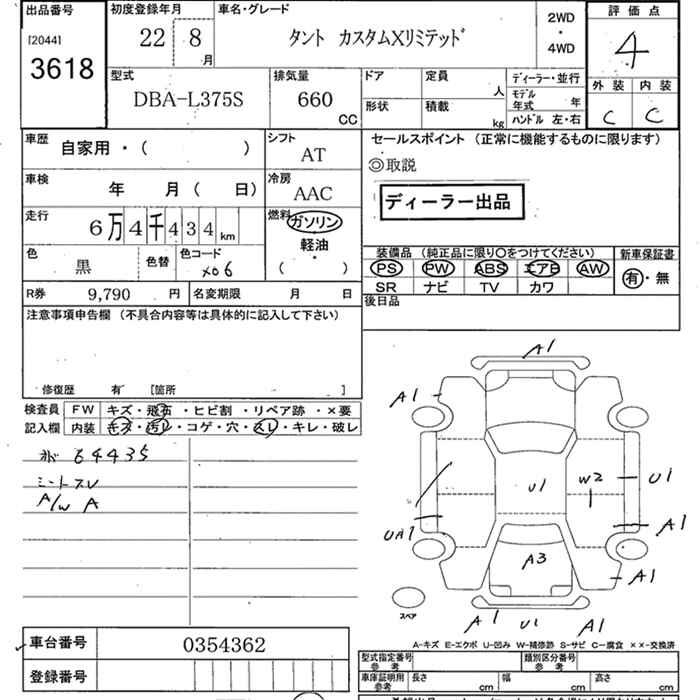 出品番号
[2044]
3618
初度登録年月
22 8
月
車名・グレード
タント カスタムXリミテッド
2WD
・
4WD
評価点
4
外装 内装
C C
型式
DBA-L375S
排気量
660
CC
ドア
形状
定員
人
積載
kg
ディーラー・並行
モデル
年式 年
ハンドル 左・右
車歴
自家用・( )
シフト
AT
車検
年 月( 日)
冷房
AAC
走行
6万4千434km
燃料
ガソリン
軽油・
( )
色
黒
色替
色コード
X06
R券 9,790 円
名変期限 月 日
セールスポイント (正常に機能するものに限ります)
◎取説
ディーラー出品
装備品 (純正品に限り〇をつけてください)
PS PW ABS エアB AW
SR ナビ TV カワ
新車保証書
有・無
後日品
注意事項申告欄 (不具合内容等は具体的に記入して下さい)
修復歴 有 [箇所 ]
検査員
記入欄
FW キズ・飛石・ヒビ割・リペア跡・×要
内装 キズ・汚レ・コゲ・穴・スレ・キレ・破レ
64435
シートスレ
A/W A
A1
A1
U1
W2
U1
UA1
A1
A3
A1
A1 U1 A1
スペア
A-キズ E-エクボ U-凹み W-補修跡 S-サビ C-腐食 ××-交換済
車台番号 0354362
登録番号
型式指定番号
参考
類別区分番号
参考
車庫証明用
参考
長さ cm
幅 cm
高さ cm